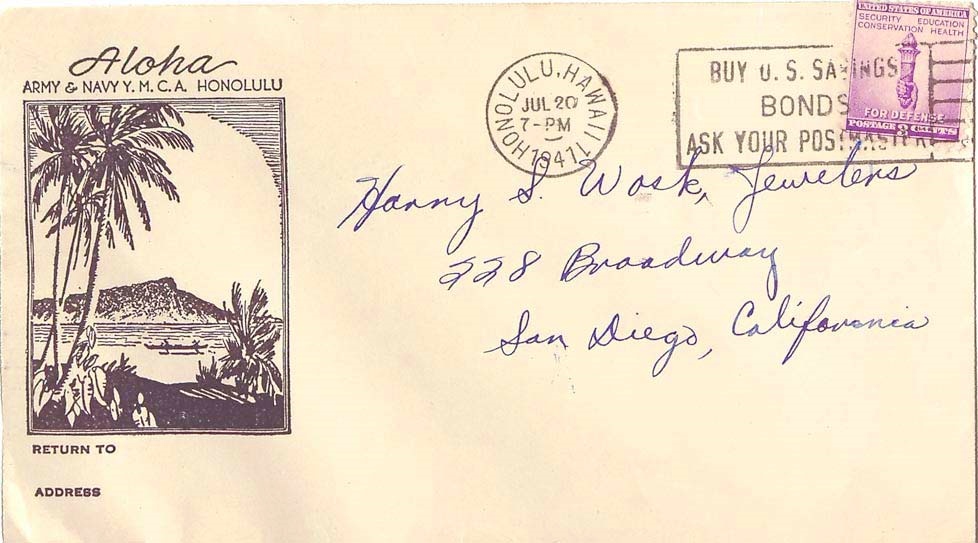 Aloha
ARMY & NAVY Y. M. C. A. HONOLULU
HONOLULU, HAWAII
JUL 20
7-PM
1941
BUY U. S. SAVINGS
BONDS
ASK YOUR POSTMASTER
UNITED STATES OF AMERICA
SECURITY EDUCATION
CONSERVATION HEALTH
FOR DEFENSE
POSTAGE 3 CENTS
Harry S. Wosk, Jewelers
228 Broadway
San Diego, California
RETURN TO
ADDRESS